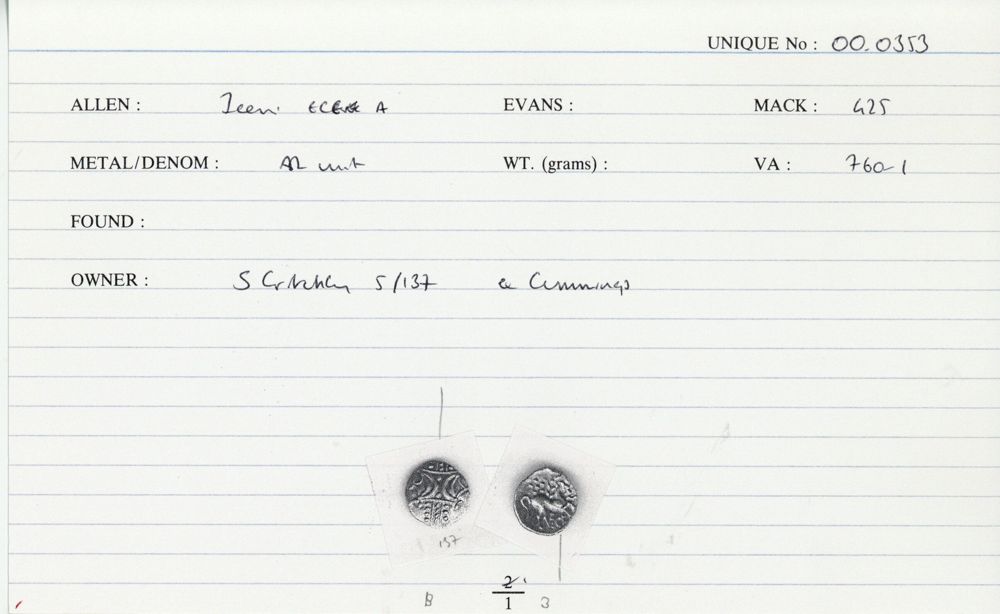 UNIQUE No : 00.0353
ALLEN : Iceni ECE A EVANS : MACK : 425
METAL/DENOM : AR unit WT. (grams) : VA : 760-1
FOUND :
OWNER : S Critchley 5/137 ex Cummings
137
B 2 3
1